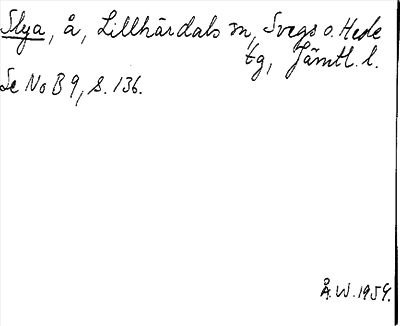 Slya, å, Lillhärdals sn, Svegs o. Hede
tg, Jämtl. l.
Se No B 9, s. 136.
Å. W. 1959.